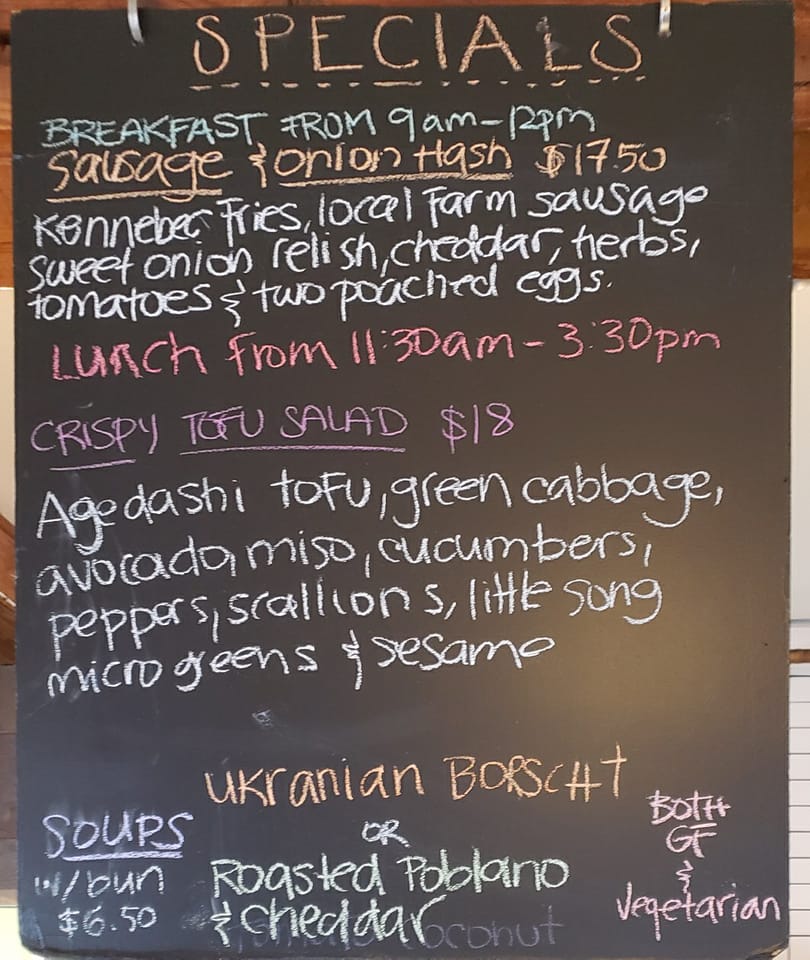 SPECIALS
BREAKFAST FROM 9am-12pm
Sausage & onion Hash $17.50
Kennebec Fries, local Farm sausage
sweet onion relish, cheddar, herbs,
tomatoes & two poached eggs.
Lunch From 11:30am - 3:30pm
CRISPY TOFU SALAD $18
Agedashi toFu, green cabbage,
avocado, miso, cucumbers,
peppers, scallions, little song
micro greens & sesame
SOUPS
w/bun
$6.50
UKranian BORSCHt
OR
Roasted Poblano
& cheddar
coconut
BOTH
GF
&
Vegetarian